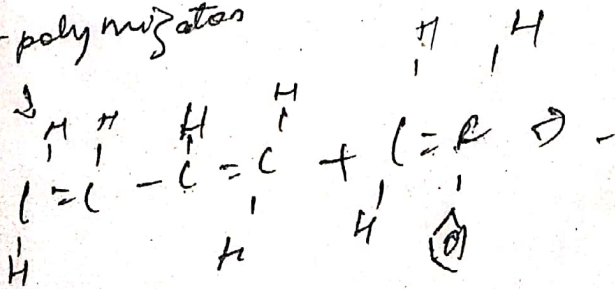 - polymizaton
H H H H H H
C = C - C = C + C = C ⇒ -
H H H